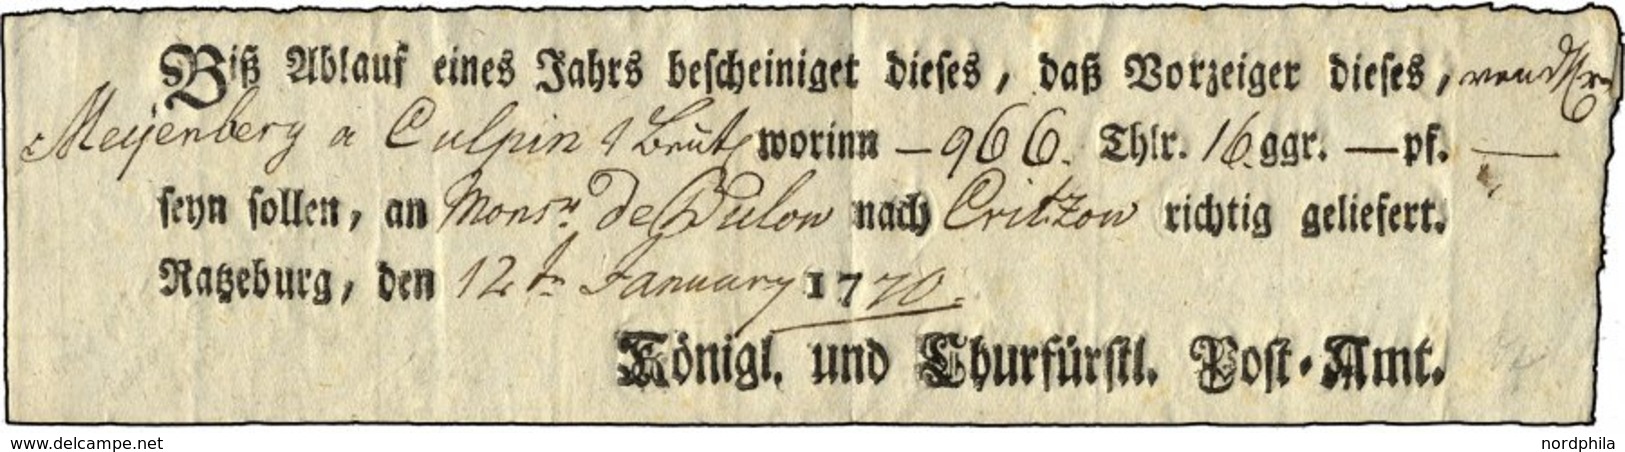 Biß Ablauf eines Jahrs bescheiniget dieses, daß Vorzeiger dieses, von d Hrn
Meyenberg a Culpin 1 worinn — 966. Thlr. 16 ggr. — pf. —
seyn sollen, an Monsr. de Bulow nach Critzow richtig geliefert.
Ratzeburg, den 12tn January 1770.
Königl. und Churfürstl. Post-Amt.
www.delcampe.net
nordphila